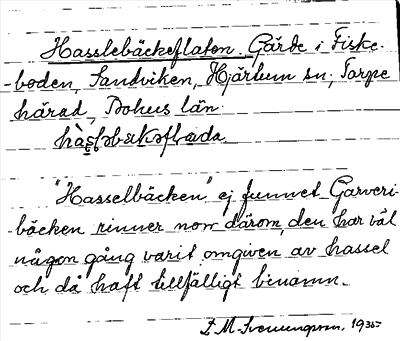 Hasslebäckeflaton. Gärde i Fiske-
boden, Sandviken, Hjärtum sn, Torpe
härad, Bohus län.
"Hasselbäcken" ej funnet. Garveri-
bäcken rinner norr därom, den har väl
någon gång varit omgiven av hassel
och då haft tillfälligt binamn.
E M. Svenungsson. 1935